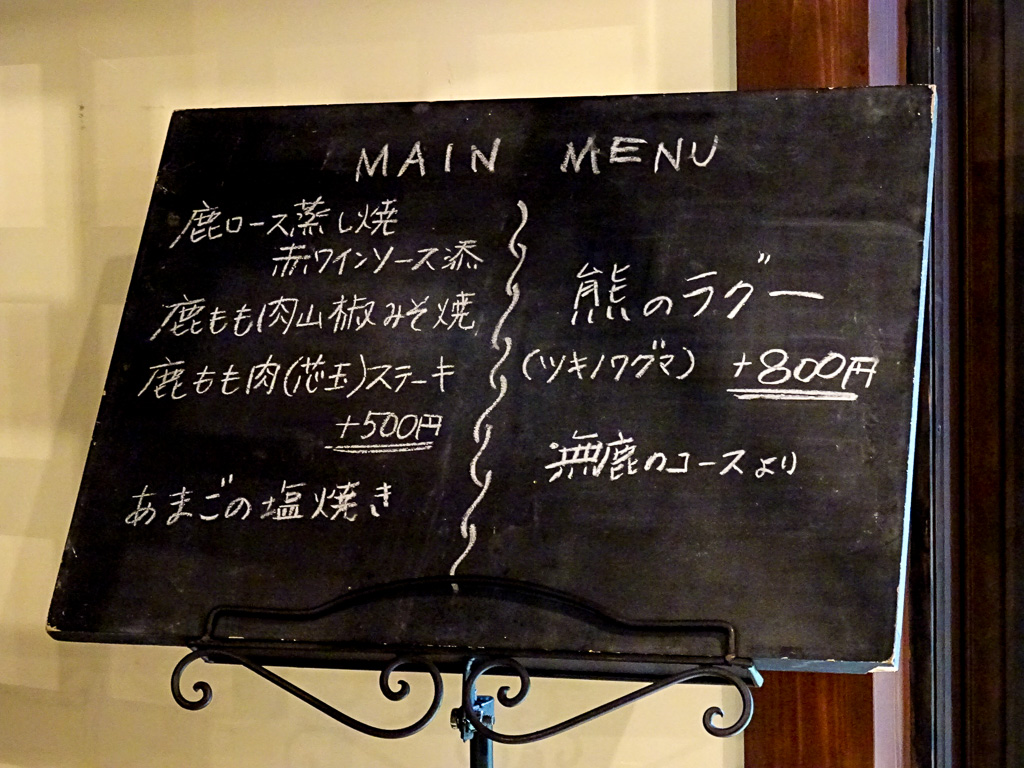 MAIN MENU
鹿ロース蒸し焼
赤ワインソース添
鹿もも肉山椒みそ焼
鹿もも肉(芯玉)ステーキ
+500円
あまごの塩焼き
熊のラグー
(ツキノワグマ) +800円
無鹿のコースより